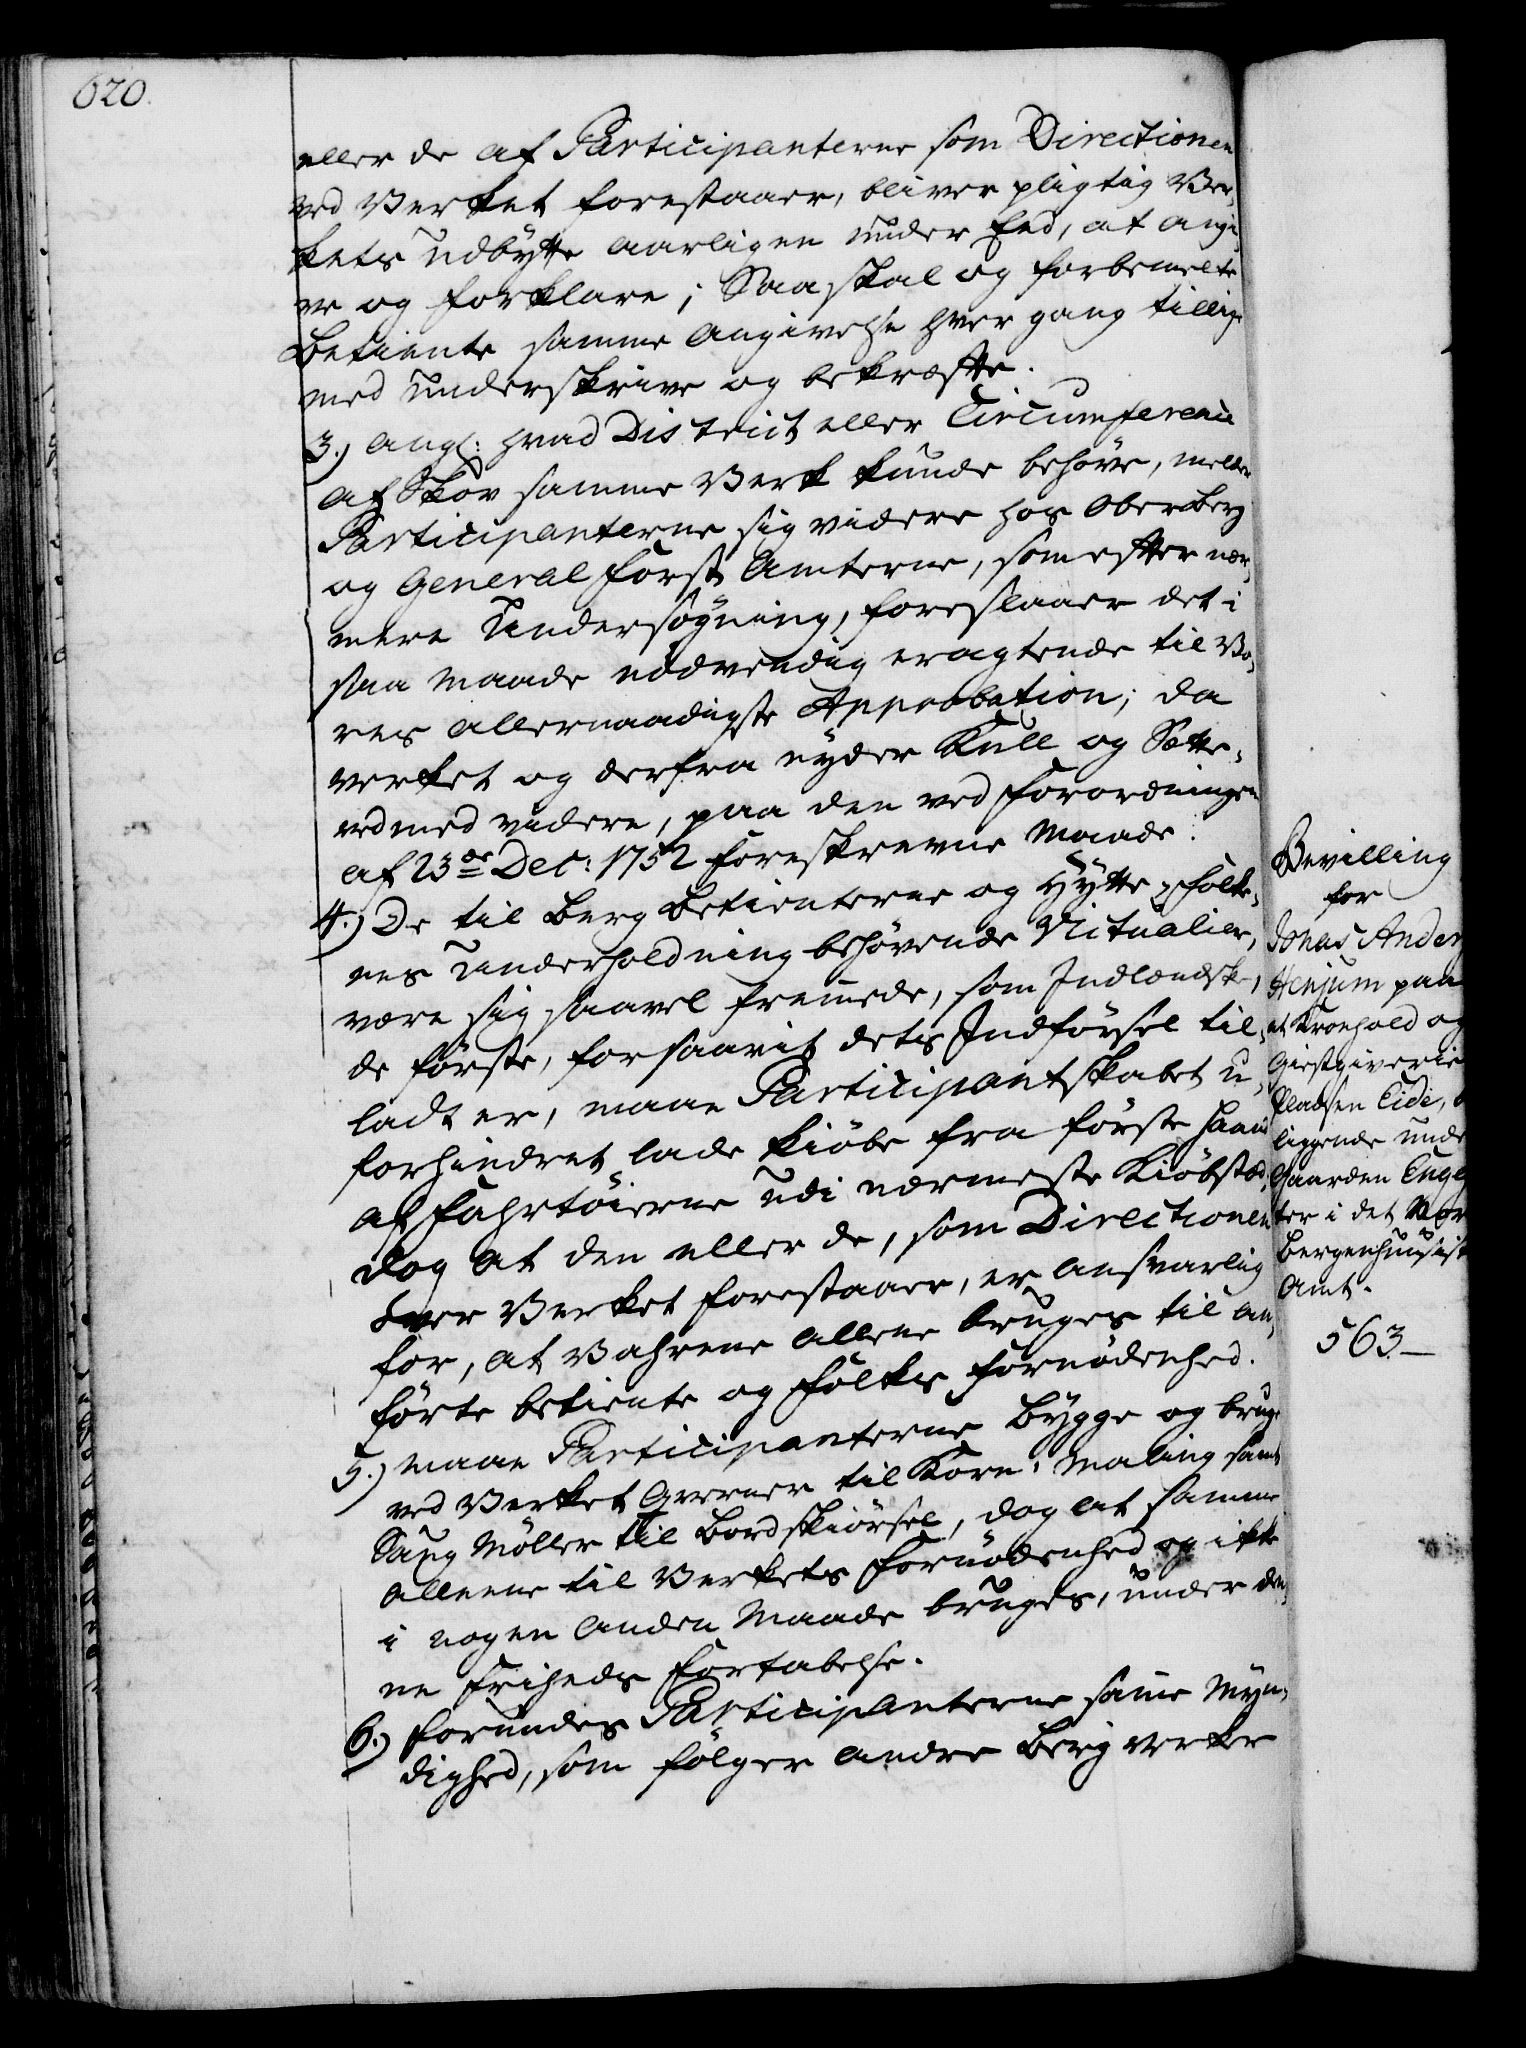 620.
eller de af Participanterne som Directionen
ved Verket forestaaer, bliver pligtig Ver-
kets Udbytte aarligen under Eed, at angi-
ve og forklare; Saa skal og forbemelte
Betiente samme Angivelse hver gang tillige
med underskrive og bekræfte.
3.) Ang: hvad District eller Circumference
af Skov samme Verk kunde behöve, melder
Participanterne sig videre hos Oberberg
og General Forst Amterne, som efter nær-
mere Undersögning, foreslaaer det i
saa Maade nödvendig eragtende til Vo-
res allernaadigste Approbation; da
verket og derfra nyder Kull og Sætte-
ved med videre, paa den ved Forordningen
af 23de Dec: 1752 foreskrevne Maade.
4.) De til Berg Betienterne og Hytte-Folke-
nes Underholdning behövende Victualier,
være sig saavel fremmede, som Indlændske,
de förste, forsaavit dets Indförsel til-
ladt er, maae Participantskabet u-
forhindret lade kiöbe fra förste Haand
af Fahrtöierne udi nærmeste Kiöbstæd,
dog at den eller de, som Directionen
över Verket forestaaer, er ansvarlig
for, at Vahrene allene bruges til an-
förte betiente og Folkes Fornödenhed.
5.) maae Participanterne bygge og bruge
ved Verket Qverner til Korn-Maling samt
Saug Möller til Bordskiörsel, dog at samme
alleene til Verkets Fornödenhed og ikke
i nogen anden Maade bruges, under den-
ne Friheds Fortabelse.
6.) forundes Participanterne samme Myn-
dighed, som fölger andre Bergverker
Bevilling
for
Jonas Anders
Henjum paa
et Kroehold og
Giestgiverie
Pladsen Eide,
liggende unde
Gaarden
ter i det Nor
Bergenhuusist
Amt.
563.